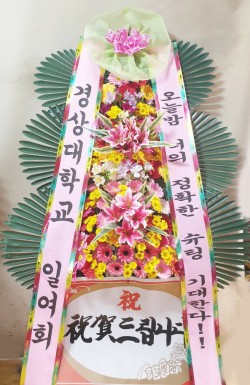 오늘밤 너의 정확한 슈팅 기대한다!!
경상대학교 일여회
祝
祝賀三집나